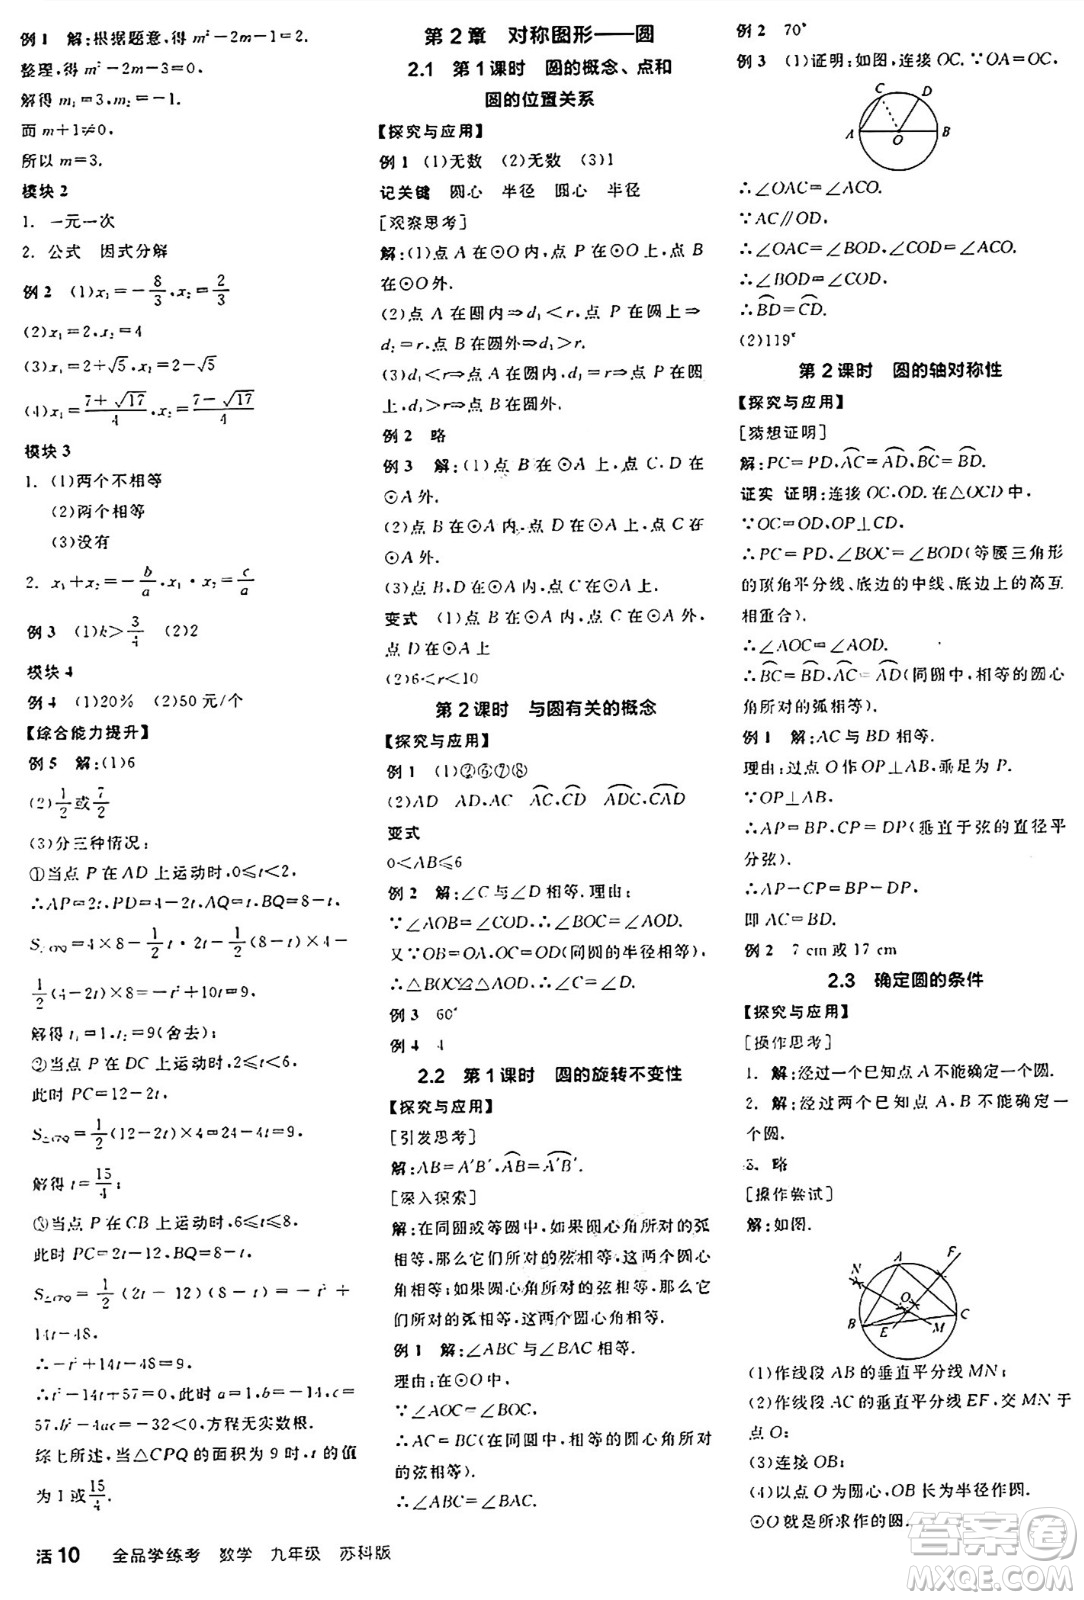 例1 解:根据题意,得 m²-2m-1=2.
整理,得 m²-2m-3=0.
解得 m₁=3,m₂=-1.
而 m+1≠0,
所以 m=3.
模块2
1. 一元一次
2. 公式 因式分解
例2 (1)x₁=-8/3,x₂=2/3
(2)x₁=2,x₂=4
(3)x₁=2+√5,x₂=2-√5
(4)x₁=(7+√17)/4,x₂=(7-√17)/4
模块3
1. (1)两个不相等
(2)两个相等
(3)没有
2. x₁+x₂=-b/a,x₁·x₂=c/a
例3 (1)k>3/4 (2)2
模块4
例4 (1)20% (2)50元/个
【综合能力提升】
例5 解:(1)6
(2)1/2或7/2
(3)分三种情况:
①当点 P 在 AD 上运动时,0≤t<2.
∴AP=2t,PD=4-2t,AQ=t,BQ=8-t,
=4×8-1/2t·2t-1/2(8-t)×4-
1/2(4-2t)×8=-t²+10t=9,
解得 t₁=1,t₂=9(舍去);
②当点 P 在 DC 上运动时,2≤t<6.
此时 PC=12-2t,
S△CPQ=1/2(12-2t)×4=24-4t=9,
解得 t=15/4;
③当点 P 在 CB 上运动时,6≤t≤8.
此时 PC=2t-12,BQ=8-t,
S△CPQ=1/2(2t-12)(8-t)=-t²+
14t-48.
∴-t²+14t-48=9.
∴t²-14t+57=0,a=1,b=-14,c=
57,b²-4ac=-32<0,方程无实数根.
综上所述,当△CPQ 的面积为9时,t 的值
为1或15/4.
第2章 对称图形——圆
2.1 第1课时 圆的概念、点和
圆的位置关系
【探究与应用】
例1 (1)无数 (2)无数 (3)1
记关键 圆心 半径 圆心 半径
[观察思考]
解:(1)点 A 在⊙O 内,点 P 在⊙O 上,点 B 在
⊙O 外.
(2)点 A 在圆内⇒d₁<r,点 P 在圆上⇒
d₂=r,点 B 在圆外⇒d₃>r.
(3)d₁<r⇒点 A 在圆内,d₂=r⇒点 P 在
圆上,d₃>r⇒点 B 在圆外.
例2 略
例3 解:(1)点 B 在⊙A 上,点 C,D 在
⊙A 外.
(2)点 B 在⊙A 内,点 D 在⊙A 上,点 C 在
⊙A 外.
(3)点 B,D 在⊙A 内,点 C 在⊙A 上.
变式 (1)点 B 在⊙A 内,点 C 在⊙A 外,
点 D 在⊙A 上
(2)6<r<10
第2课时 与圆有关的概念
【探究与应用】
例1 (1)②⑥⑦⑧
(2)AD AD,AC AC,CD ADC,CAD
变式
0<AB≤6
例2 解:∠C 与∠D 相等.理由:
∵∠AOB=∠COD,∴∠BOC=∠AOD.
又∵OB=OA,OC=OD(同圆的半径相等),
∴△BOC≌△AOD,∴∠C=∠D.
例3 60°
例4 4
2.2 第1课时 圆的旋转不变性
【探究与应用】
[引发思考]
解:AB=A′B′,AB=A′B′.
[深入探索]
解:在同圆或等圆中,如果圆心角所对的弧
相等,那么它们所对的弦相等,圆心角
相等;如果圆心角所对的弦相等,那么它们
所对的弧相等,圆心角相等.
例1 解:∠ABC 与∠BAC 相等.
理由:在⊙O 中,
∵∠AOC=∠BOC,
∴AC=BC(在同圆中,相等的圆心角所对
的弦相等),
∴∠ABC=∠BAC.
例2 70°
例3 (1)证明:如图,连接 OC.∵OA=OC,
C D
A O B
∴∠OAC=∠ACO.
∵AC∥OD,
∴∠OAC=∠BOD,∠COD=∠ACO.
∴∠BOD=∠COD.
∴BD=CD.
(2)119°
第2课时 圆的轴对称性
【探究与应用】
[猜想证明]
解:PC=PD,AC=AD,BC=BD.
证实 证明:连接 OC,OD.在△OCD 中,
∵OC=OD,OP⊥CD,
∴PC=PD,∠BOC=∠BOD(等腰三角形
的顶角平分线、底边的中线、底边的高互
相重合).
∴∠AOC=∠AOD.
∴BC=BD,AC=AD(同圆中,相等的圆心
角所对的弧相等).
例1 解:AC 与 BD 相等.
理由:过点 O 作 OP⊥AB,垂足为 P.
∵OP⊥AB,
∴AP=BP,CP=DP(垂直于弦的直径平
分弦).
∴AP-CP=BP-DP,
即 AC=BD.
例2 7 cm 或 17 cm
2.3 确定圆的条件
【探究与应用】
[操作思考]
1. 解:经过一个已知点 A 不能确定一个圆.
2. 解:经过两个已知点 A,B 不能确定一
个圆.
3. 略
[操作尝试]
解:如图.
N A F
O
B E M C
(1)作线段 AB 的垂直平分线 MN;
(2)作线段 AC 的垂直平分线 EF,交 MN 于
点 O;
(3)连接 OB;
(4)以点 O 为圆心,OB 长为半径作圆.
⊙O 就是所求作的圆.
活10 全品学练考 数学 九年级 苏科版
答案圈
MXQE.COM